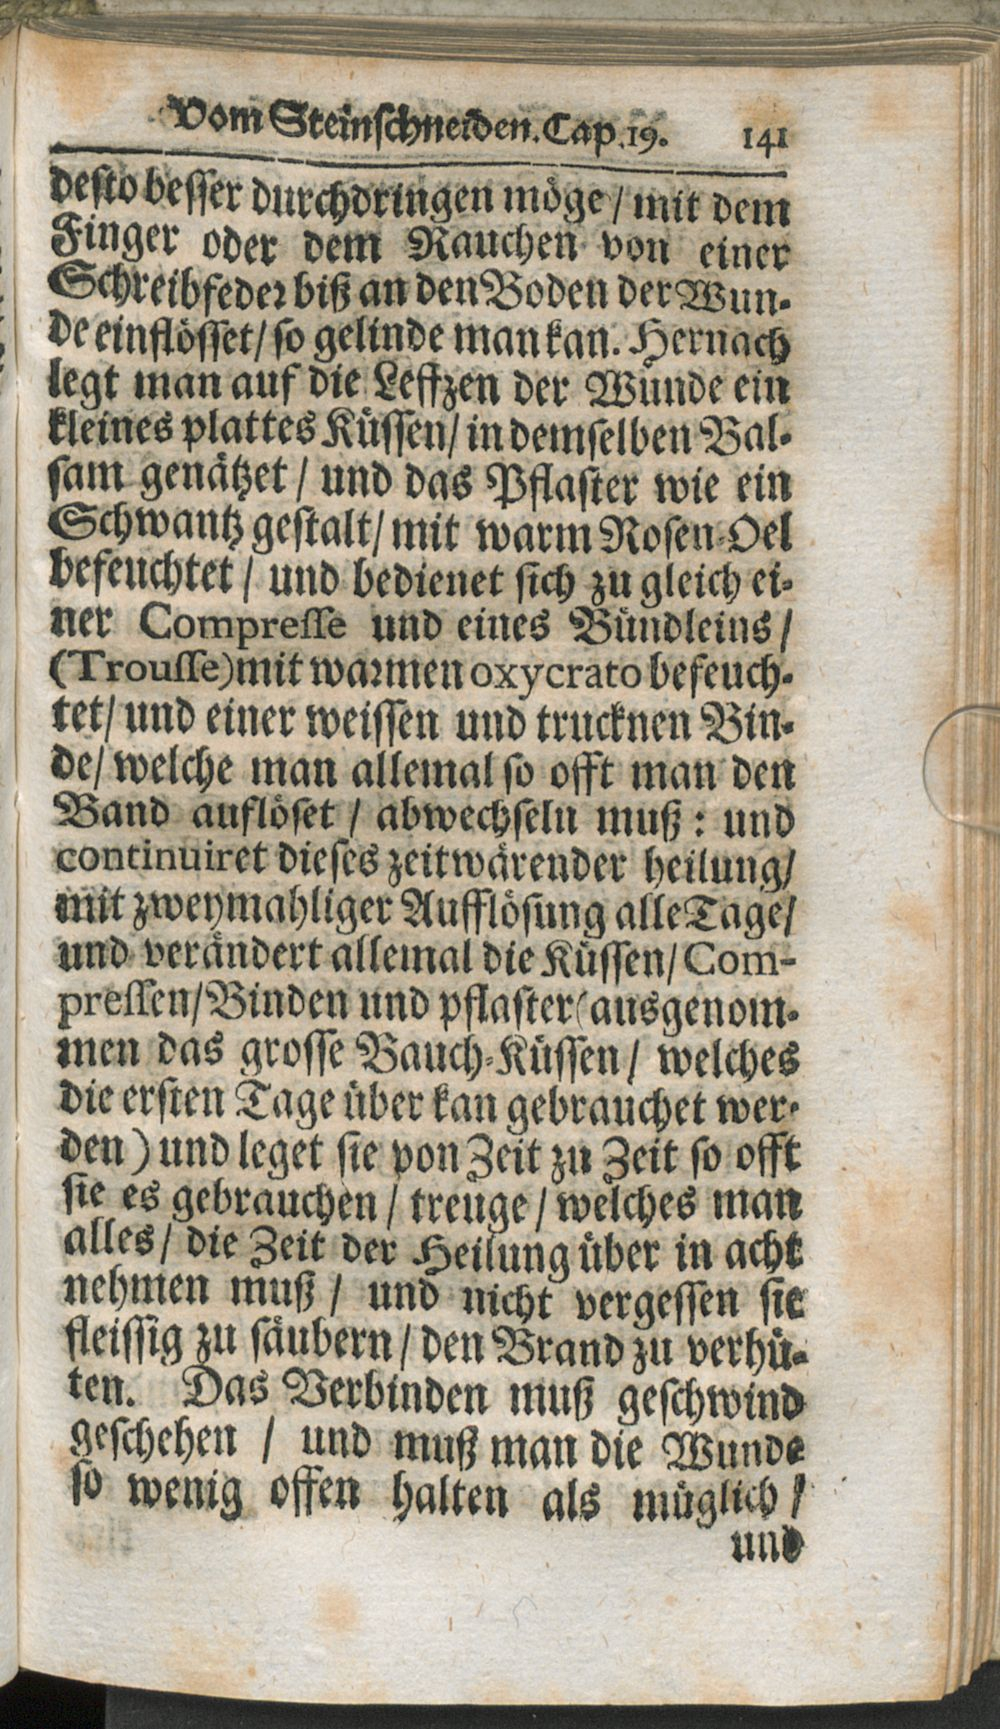 Vom Steinschneiden. Cap. 19. 141
desto besser durchdringen möge / mit dem
Finger oder dem Rauchen von einer
Schreibfeder biß an den Boden der Wun-
de einflösset / so gelinde man kan. Hernach
legt man auf die Leffzen der Wunde ein
kleines plattes Küssen / in demselben Bal-
sam genätzet / und das Pflaster wie ein
Schwantz gestalt / mit warm Rosen-Oel
befeuchtet / und bedienet sich zu gleich ei-
ner Compresse und eines Bündleins /
(Trousse) mit warmen oxycrato befeuch-
tet / und einer weissen und trucknen Bin-
de / welche man allemal so offt man den
Band auflöset / abwechseln muß : und
continuiret dieses zeitwärender heilung /
mit zweymahliger Aufflösung alle Tage /
und verändert allemal die Küssen / Com-
pressen / Binden und pflaster (ausgenom-
men das grosse Bauch-Küssen / welches
die ersten Tage über kan gebrauchet wer-
den ) und leget sie von Zeit zu Zeit so offt
sie es gebrauchen / treuge / welches man
alles / die Zeit der Heilung über in acht
nehmen muß / und nicht vergessen sie
fleissig zu säubern / den Brand zu verhü-
ten. Das Verbinden muß geschwind
geschehen / und muß man die Wunde
so wenig offen halten als müglich /
und